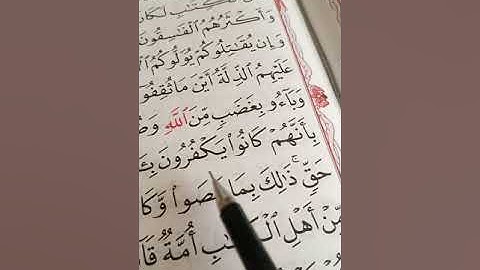 ٱلۡكِتَٰبِ لَكَانَ
وَأَكۡثَرُهُمُ ٱلۡفَٰسِقُونَ
وَإِن يُقَٰتِلُوكُمۡ يُوَلُّوكُمُ
عَلَيۡهِمُ ٱلذِّلَّةُ أَيۡنَ مَا ثُقِفُوٓاْ
وَبَآءُو بِغَضَبٖ مِّنَ ٱللَّهِ
بِأَنَّهُمۡ كَانُواْ يَكۡفُرُونَ
حَقّٖۚ ذَٰلِكَ بِمَا عَصَواْ
مِّنۡ أَهۡلِ ٱلۡكِتَٰبِ أُمَّةٞ